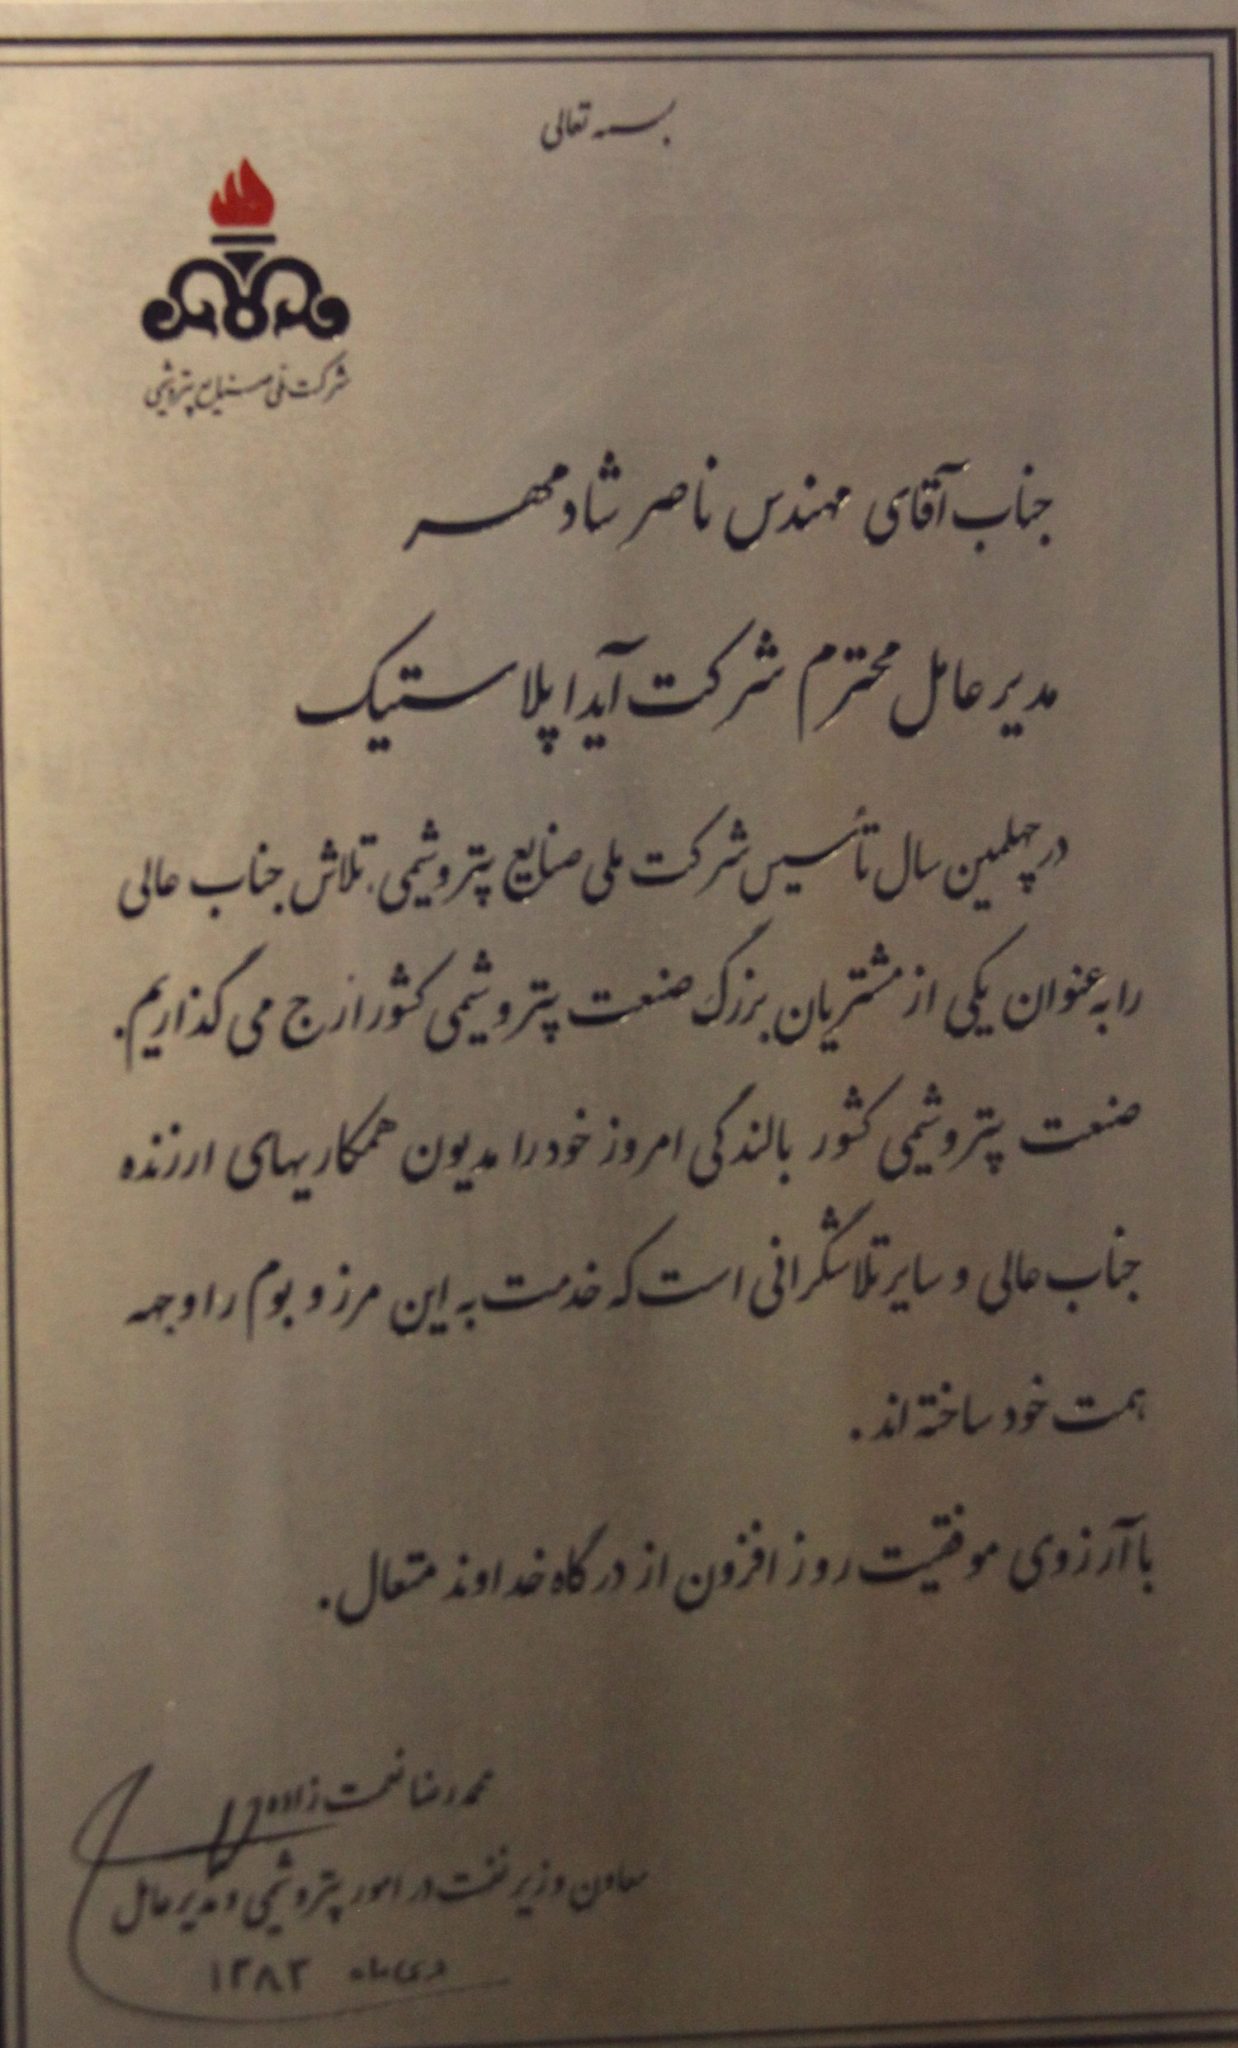 بسمه تعالی
شرکت ملی صنایع پتروشیمی
جناب آقای مهندس ناصر شادمهر
مدیر عامل محترم شرکت آیدا پلاستیک
در چهلمین سال تأسیس شرکت ملی صنایع پتروشیمی، تلاش جناب عالی
را به عنوان یکی از مشتریان بزرگ صنعت پتروشیمی کشور ارج می گذاریم.
صنعت پتروشیمی کشور بالندگی امروز خود را مدیون همکاریهای ارزنده
جناب عالی و سایر تلاشگرانی است که خدمت به این مرز و بوم را وجهه
همت خود ساخته اند.
با آرزوی موفقیت روز افزون از درگاه خداوند متعال.
محمدرضا نعمت زاده
معاون وزیر نفت در امور پتروشیمی و مدیر عامل
دی ماه ۱۳۸۳